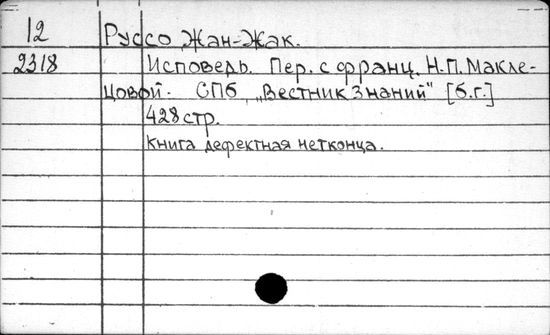 12 Руссо Жан-Жак.
2318 Исповедь. Пер. с франц. Н.П. Макле-
цовой. СПб, „Вестник Знаний" [б.г.]
428 стр.
Книга дефектная нет конца.